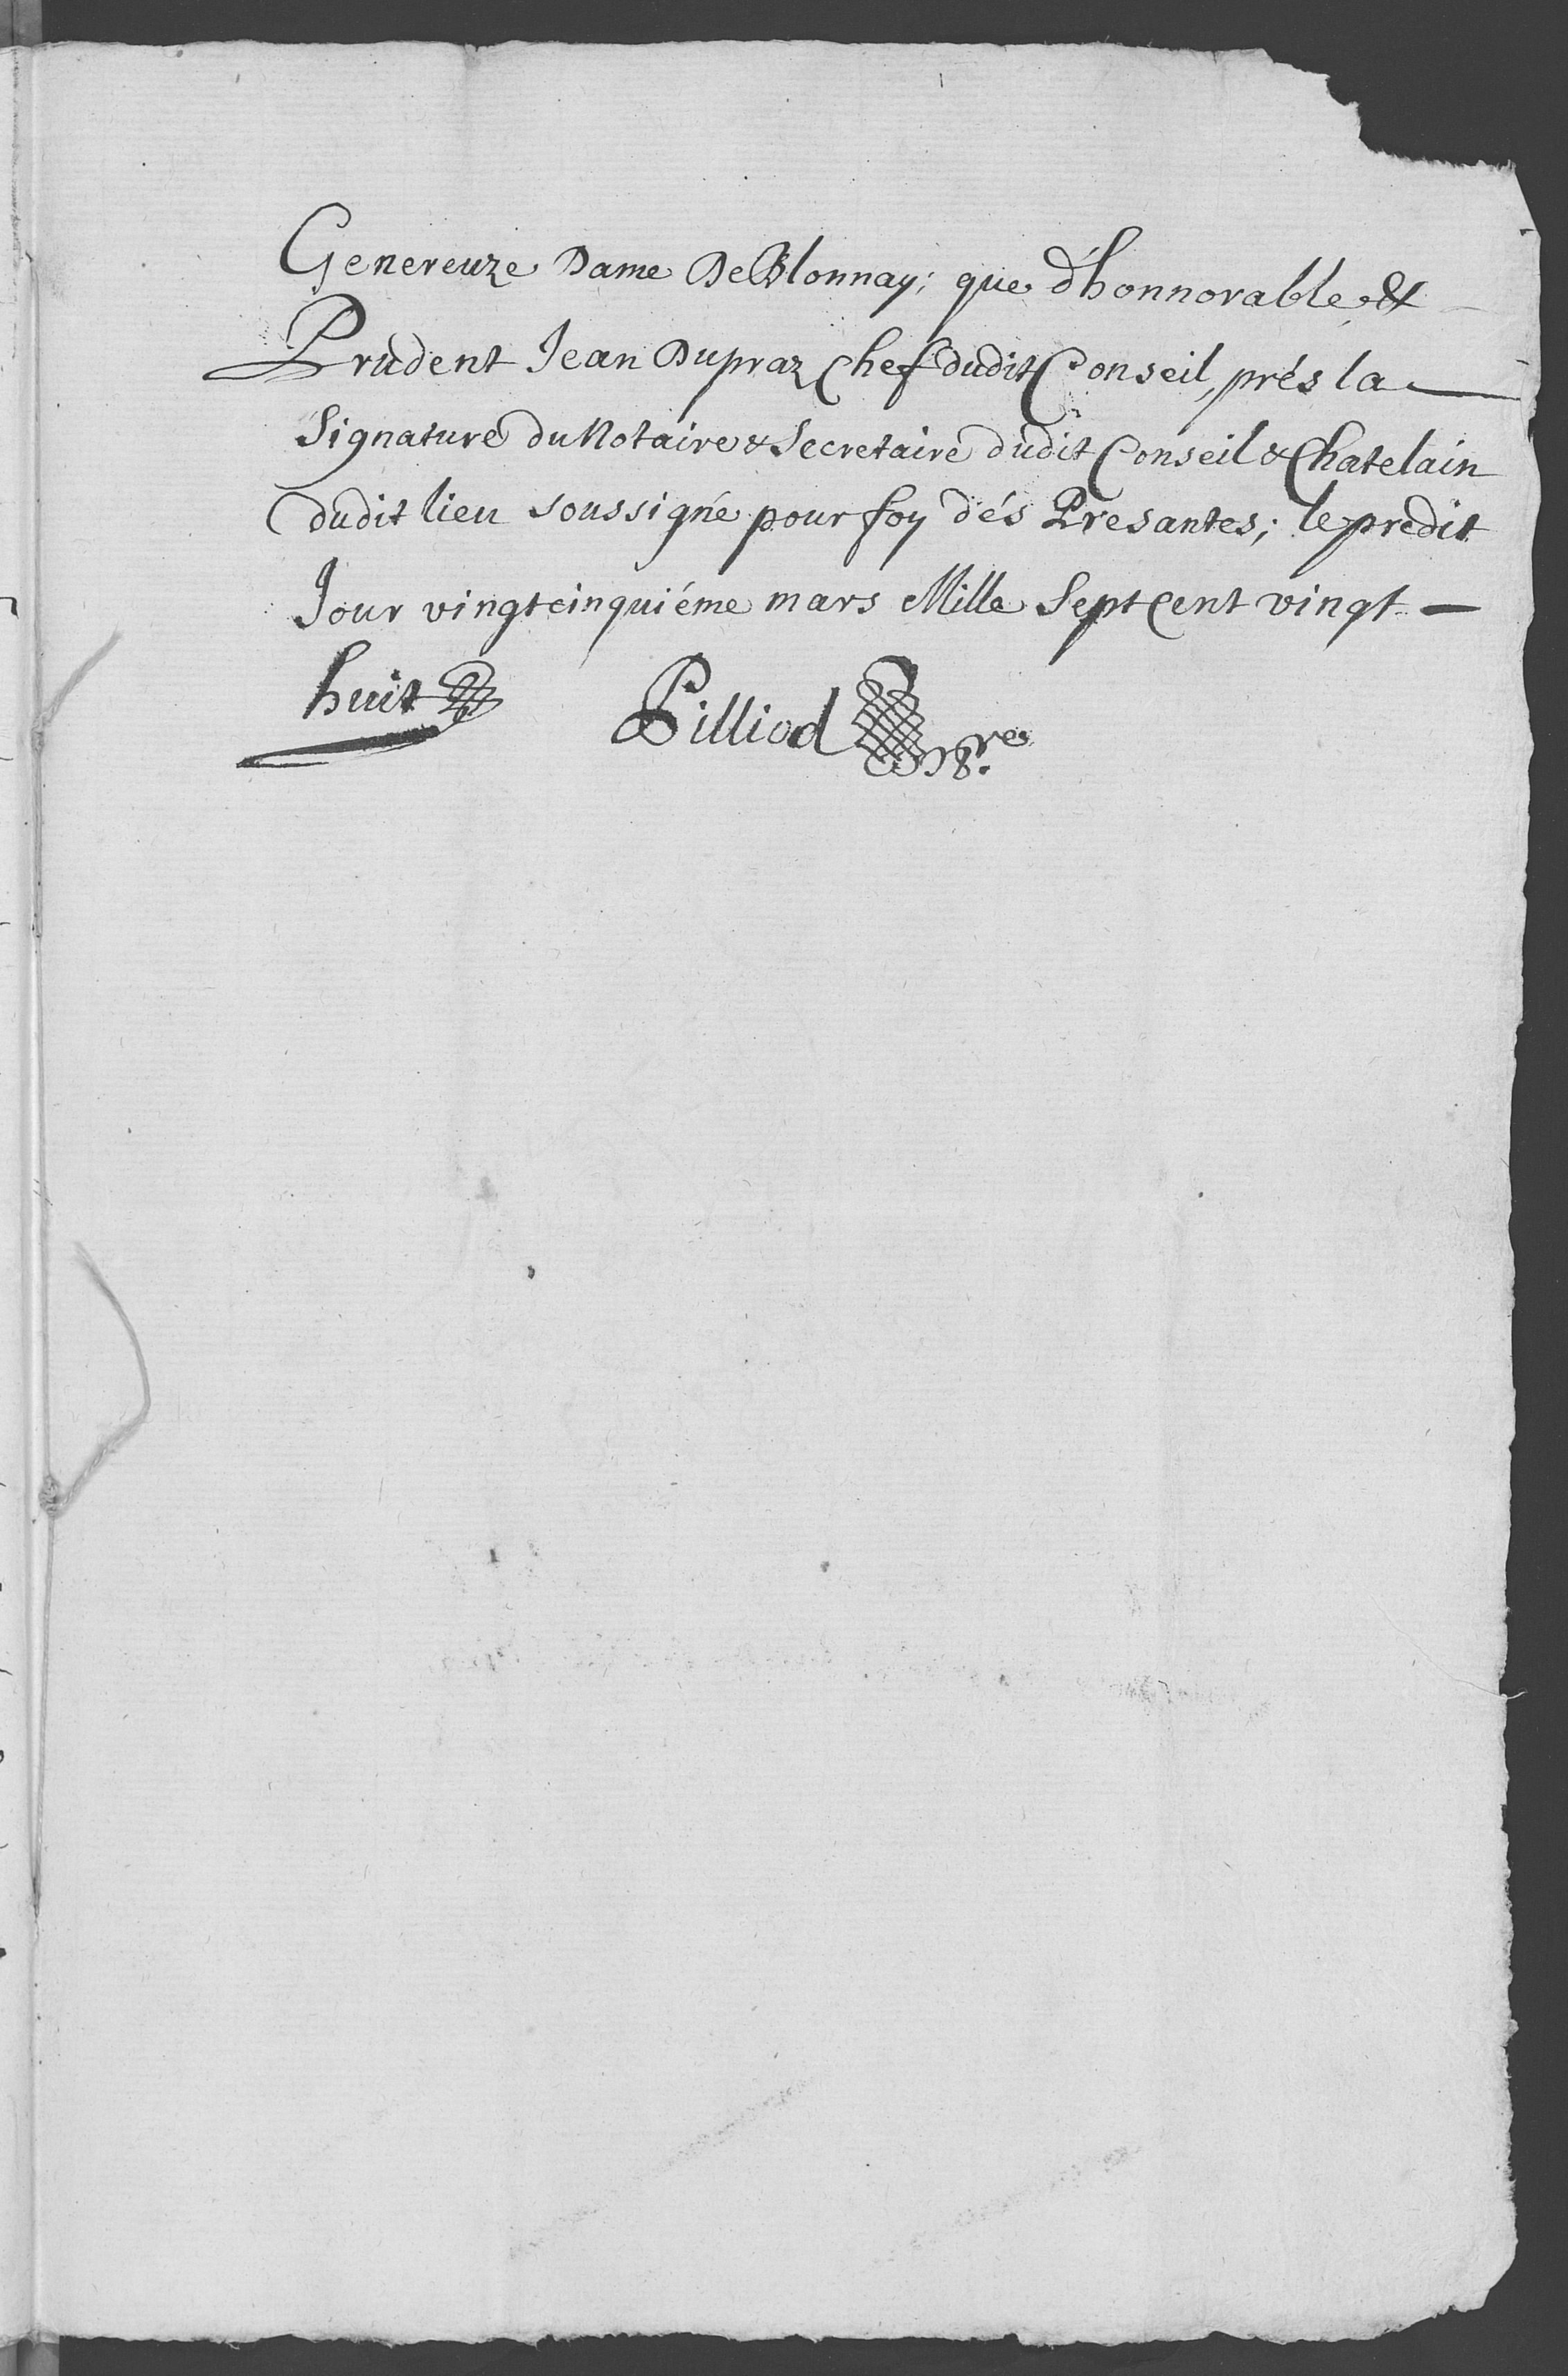 Genereuze Dame De Blonnay; que d'honnorable &
Prudent Jean Dupraz Chef dudit Conseil, prés la
Signature du Notaire & Secretaire dudit Conseil & Chatelain
dudit lieu soussigné pour foy dés Presantes; le predit
Jour vingtcinquiéme mars Mille Sept Cent vingt
huit
Pilliod